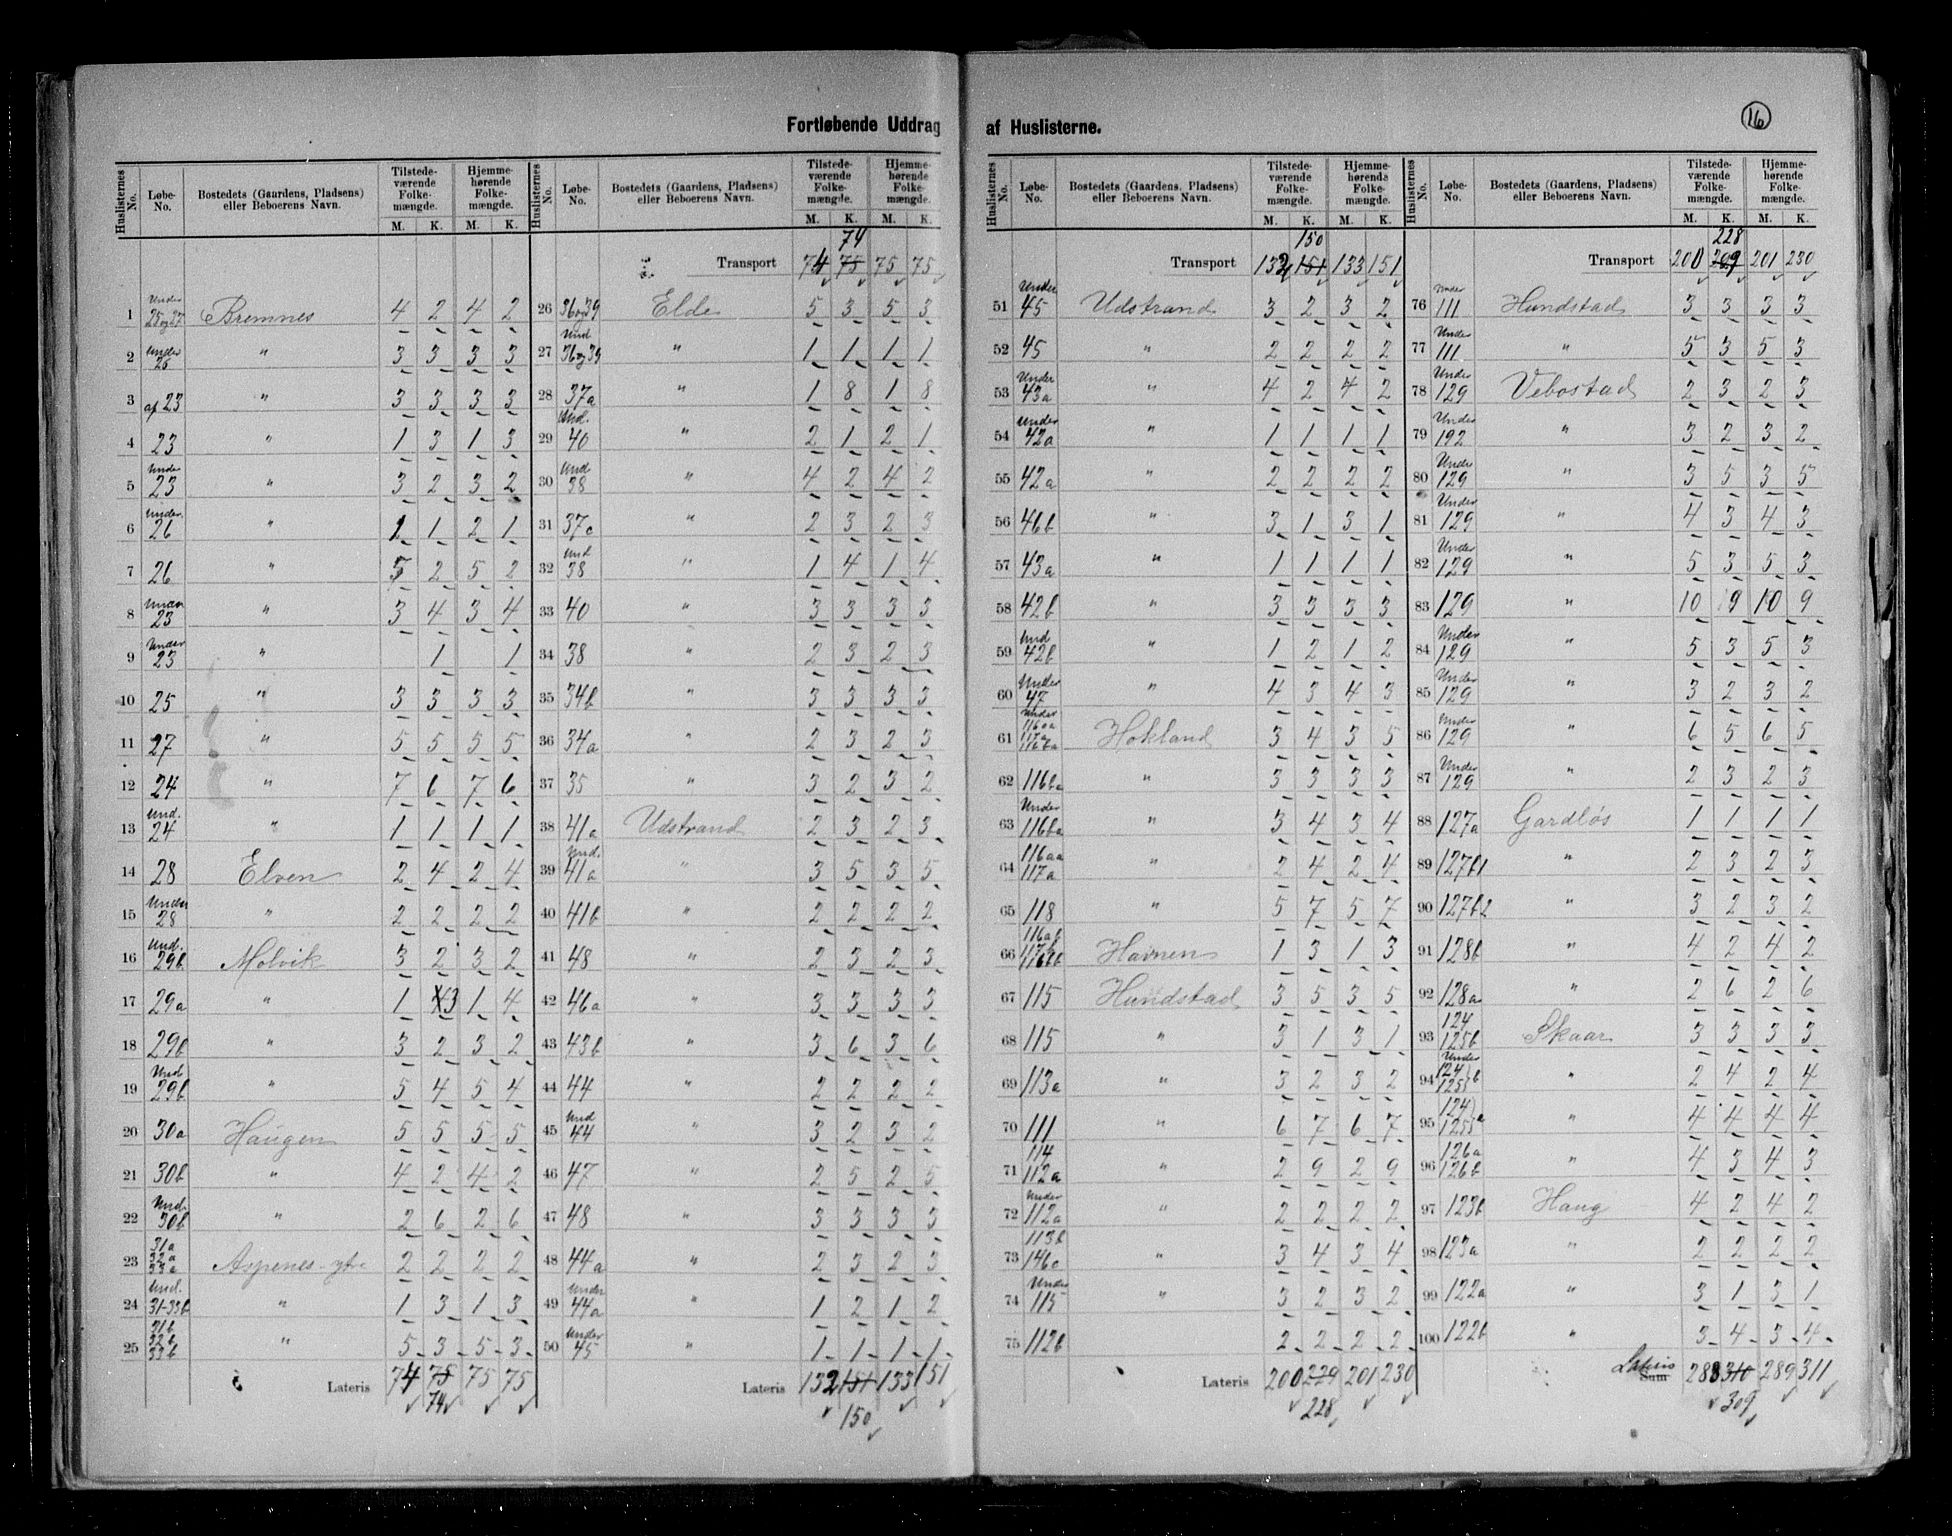 Fortløbende Uddrag af Huslisterne.
16
Huslisternes No. Løbe-No. Bostedets (Gaardens, Pladsens) eller Beboerens Navn. Tilstedeværende Folkemængde. M. K. Hjemmehørende Folkemængde. M. K.
1 Under 25 og 27 Bremnes 4 2 4 2
2 Under 25 " 3 3 3 3
3 af 23 " 3 3 3 3
4 23 " 1 3 1 3
5 Under 23 " 3 2 3 2
6 Under 26 " 1 2 1
7 26 " 5 2 5 2
8 Under 23 " 3 4 3 4
9 Under 23 " 1 1
10 25 " 3 3 3 3
11 27 " 5 5 5 5
12 24 " 7 6 7 6
13 Und. 24 " 1 1 1 1
14 28 Elven 2 4 2 4
15 Under 28 " 2 2 2 2
16 Und. 29b Molvik 3 2 3 2
17 29a " 1 4 3 1 4
18 29b " 3 2 3 2
19 Und 29b " 5 4 5 4
20 30a Haugen 5 5 5 5
21 30b " 4 2 4 2
22 Und. 30b " 2 6 2 6
23 31a 32a 33a Aspenes ytre 2 2 2 2
24 Und. 31-33b " 1 3 1 3
25 31b 32b 33b " 5 3 5 3
Lateris 74 75 75 75
74
Huslisternes No. Løbe-No. Bostedets (Gaardens, Pladsens) eller Beboerens Navn. Tilstedeværende Folkemængde. M. K. Hjemmehørende Folkemængde. M. K.
74
Transport 74 75 75 75
26 36 og 39 Elde 5 3 5 3
27 Und 36 og 39 " 1 1 1 1
28 37a " 1 8 1 8
29 Und. 40 " 2 1 2 1
30 Und 38 " 4 2 4 2
31 37c " 2 3 2 3
32 Und 38 " 1 4 1 4
33 40 " 3 3 3 3
34 38 " 2 3 2 3
35 34b " 3 3 3 3
36 34a " 2 3 2 3
37 35 " 3 2 3 2
38 41a Udstrand 2 3 2 3
39 Und. 41a " 3 5 3 5
40 41b " 2 2 2 2
41 48 " 2 3 2 3
42 46a " 3 3 3 3
43 43b " 3 6 3 6
44 44 " 2 2 2 2
45 Und 44 " 3 2 3 2
46 47 " 2 5 2 5
47 48 " 3 3 3 3
48 44a " 2 3 2 3
49 Under 44a " 1 2 1 2
50 Under 45 " 1 1 1 1
Lateris 132 151 133 151
150
Huslisternes No. Løbe-No. Bostedets (Gaardens, Pladsens) eller Beboerens Navn. Tilstedeværende Folkemængde. M. K. Hjemmehørende Folkemængde. M. K.
150
Transport 132 151 133 151
51 Under 45 Udstrand 3 2 3 2
52 45 " 2 2 2 2
53 Under 43a " 4 2 4 2
54 Under 42a " 1 1 1 1
55 42a " 2 2 2 2
56 46b " 3 1 3 1
57 43a " 1 1 1 1
58 42b " 3 3 3 3
59 Und 42b " 1 2 1 2
60 Under 47 " 4 3 4 3
61 Under 116aa 117a 116ba Hokland 3 4 3 5
62 116ba " 3 3 3 3
63 Under 116ba " 3 4 3 4
64 116aa 117a " 2 4 2 4
65 118 " 5 7 5 7
66 116ab 117b 116bb Havnen 1 3 1 3
67 115 Hundstad 3 5 3 5
68 115 " 3 1 3 1
69 113a " 3 2 3 2
70 111 " 6 7 6 7
71 114 112a " 2 9 2 9
72 Under 112a " 2 2 2 2
73 113b 146c " 3 4 3 4
74 Under 115 " 3 2 3 2
75 112b 2 2 2 2
Lateris 200 229 201 230
228
Huslisternes No. Løbe-No. Bostedets (Gaardens, Pladsens) eller Beboerens Navn. Tilstedeværende Folkemængde. M. K. Hjemmehørende Folkemængde. M. K.
228
Transport 200 201 230
76 Under 111 Hundstad 3 3 3 3
77 Under 111 " 5 3 5 3
78 Under 129 Vebostad 2 3 2 3
79 Under 192 " 3 2 3 2
80 Under 129 " 3 5 3 5
81 Under 129 " 4 3 4 3
82 Under 129 " 5 3 5 3
83 129 " 10 9 10 9
84 Under 129 " 5 3 5 3
85 Under 129 " 3 2 3 2
86 Under 129 " 6 5 6 5
87 Under 129 " 2 3 2 3
88 127a Gardløs 1 1 1 1
89 127b1 " 2 3 2 3
90 127b2 " 3 2 3 2
91 128b " 4 2 4 2
92 128a " 2 6 2 6
93 124 125b Skaar 3 3 3 3
94 Under 124 125 b " 2 4 2 4
95 124 125 a " 4 4 4 4
96 126a 126b " 4 3 4 3
97 123b Haug 4 2 4 2
98 123a " 2 2 2 2
99 122a " 3 1 3 1
100 122b " 3 4 3 4
Lateris Sum 288 310 289 311
309